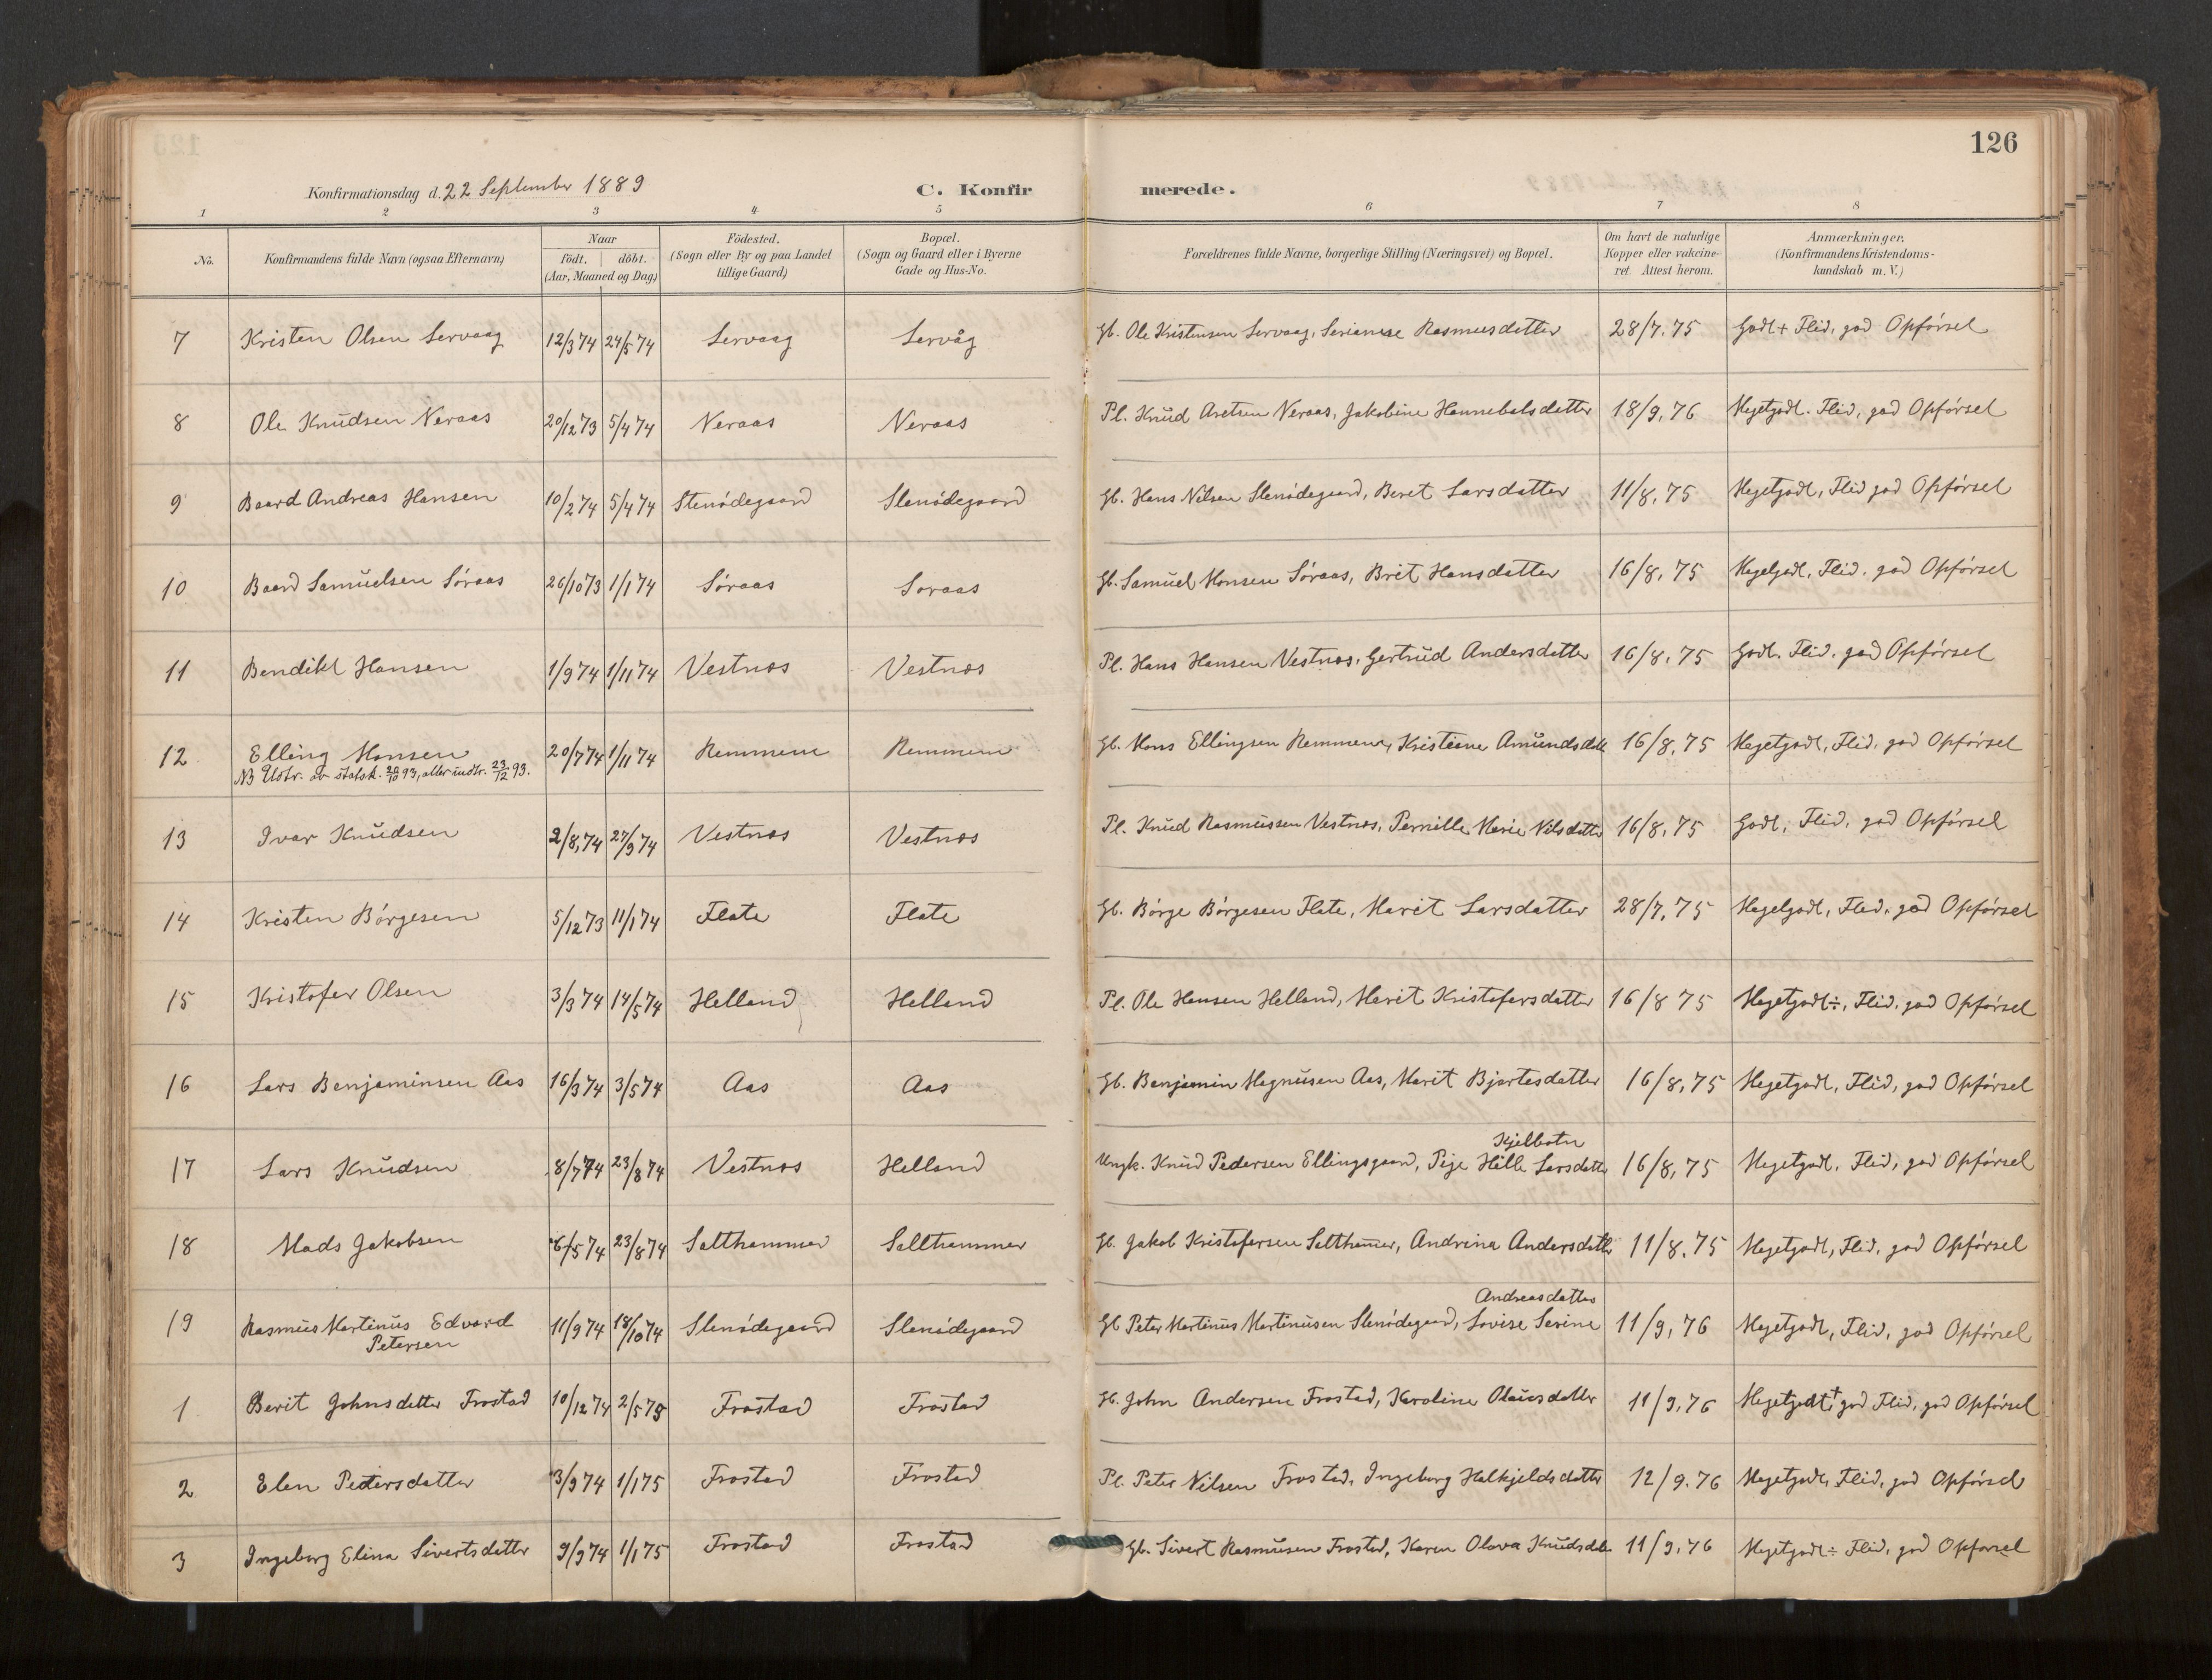 126
Konfirmationsdag d. 22 September 1889 C. Konfirmerede.
1 2 3 4 5 6 7 8
No. Konfirmandens fulde Navn (ogsaa Efternavn) Naar födt. döbt. (Aar, Maaned og Dag) Födested. (Sogn eller By og paa Landet tillige Gaard) Bopæl. (Sogn og Gaard eller i Byerne Gade og Hus-No. Forældrenes fulde Navne, borgerlige Stilling (Næringsvei) og Bopæl. Om havt de naturlige Kopper eller vakcineret. Attest herom. Anmærkninger. (Konfirmandens Kristendomskundskab m. V.)
7 Kristen Olsen Servaag 12/3 74 24/5 74 Servaag Servåg Gb. Ole Kristensen Servaag, Serianna Rasmusdatter 28/7. 75 Godt + Flid, god Opförsel
8 Ole Knudsen Neraas 20/12 73 5/4 74 Neraas Neraas Pl. Knud Aretsen Neraas, Jakobine Hannebalsdatter 18/9, 76 Megetgodt. Flid, god Opförsel
9 Baard Andreas Hansen 10/2 74 5/4 74 Stenödegaard Stenödegaard Gb. Hans Nilsen Stenödegaard, Beret Larsdatter 11/8, 75 Megetgodt, Flid god Opförsel
10 Baard Samuelsen Söraas 26/10 73 1/1 74 Söraas Soraas Gb. Samuel Monsen Söraas, Brit Hansdatter 16/8, 75 Megetgodt, Flid, god Opförsel
11 Bendikt Hansen 1/9 74 1/11 74 Vestnæs Vestnæs Pl. Hans Hansen Vestnæs, Gertrud Andersdatter 16/8, 75 Godt. Flid, god Opförsel
12 Elling Monsen 20/7 74 1/11 74 Remmem Remmem Gb. Mons Ellingsen Remmem, Kristiane Amundsdatt 16/8, 75 Megetgodt, Flid, god Opförsel
NB Udtr. av statsk. 20/10 93, atter indtr. 23/12 93.
13 Ivar Knudsen 2/8, 74 27/9 74 Vestnæs Vestnæs Pl. Knud Rasmussen Vestnæs, Pernille Marie Nilsdatter 16/8, 75 Godt, Flid, god Opförsel
14 Kristen Börgesen 5/12 73 11/1 74 Flate Flate Gb. Börge Börgesen Flate, Marit Larsdatter 28/7, 75 Megetgodt, Flid, god Opförsel
15 Kristofer Olsen 3/3 74 14/5 74 Helland Helland Pl. Ole Hansen Helland, Marit Kristofersdatter 16/8 75 Megetgodt ÷, Flid, god Opförsel
16 Lars Benjaminsen Aas 16/3 74 3/5 74 Aas Aas Gb. Benjamin Magnusen Aas, Marit Bjartesdatter 16/8, 75 Megetgodt, Flid, god Opförsel
Kjelbotn
17 Lars Knudsen 8/7 74 23/8 74 Vestnæs Helland Ungk. Knud Pedersen Ellingsgaard, Pige Hille Larsdatter 16/8, 75 Megetgodt, Flid, god Opförsel
18 Mads Jakobsen 6/5 74 23/8 74 Salthammer Salthammer Gb. Jakob Kristofersen Salthamer, Andrina Andersdatter 11/8. 75 Megetgodt, Flid, god Opförsel
Andreasdatter
19 Rasmus Martinus Edvard 11/9 74 18/10 74 Stenödegaard Stenödegaard Gb Peter Martinus Martinusen Stenödegaard, Lovise Serine 11/9, 76 Megetgodt, Flid, god Opförsel
Petersen
1 Berit Johnsdatter Frostad 10/12 74 2/5 75 Frostad Frostad Gb. John Andersen Frostad, Karoline Olausdatter 11/9, 76 Megetgodt +, god Flid, god Opförsel
2 Elen Petersdatter 3/9 74 1/1 75 Frostad Frostad Pl. Peter Nilsen Frostad, Ingeborg Halkjeldsdatter 12/9. 76 Megetgodt, Flid, god Opförsel
3 Ingeborg Elina Sivertsdatter 9/9 74 1/1 75 Frostad Frostad Gb. Sivert Rasmusen Frostad, Karen Olava Knudsdat 11/9, 76 Megetgodt ÷ Flid, god Opförsel